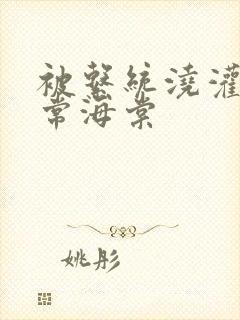 被繫統澆灌
常海棠
姚彤